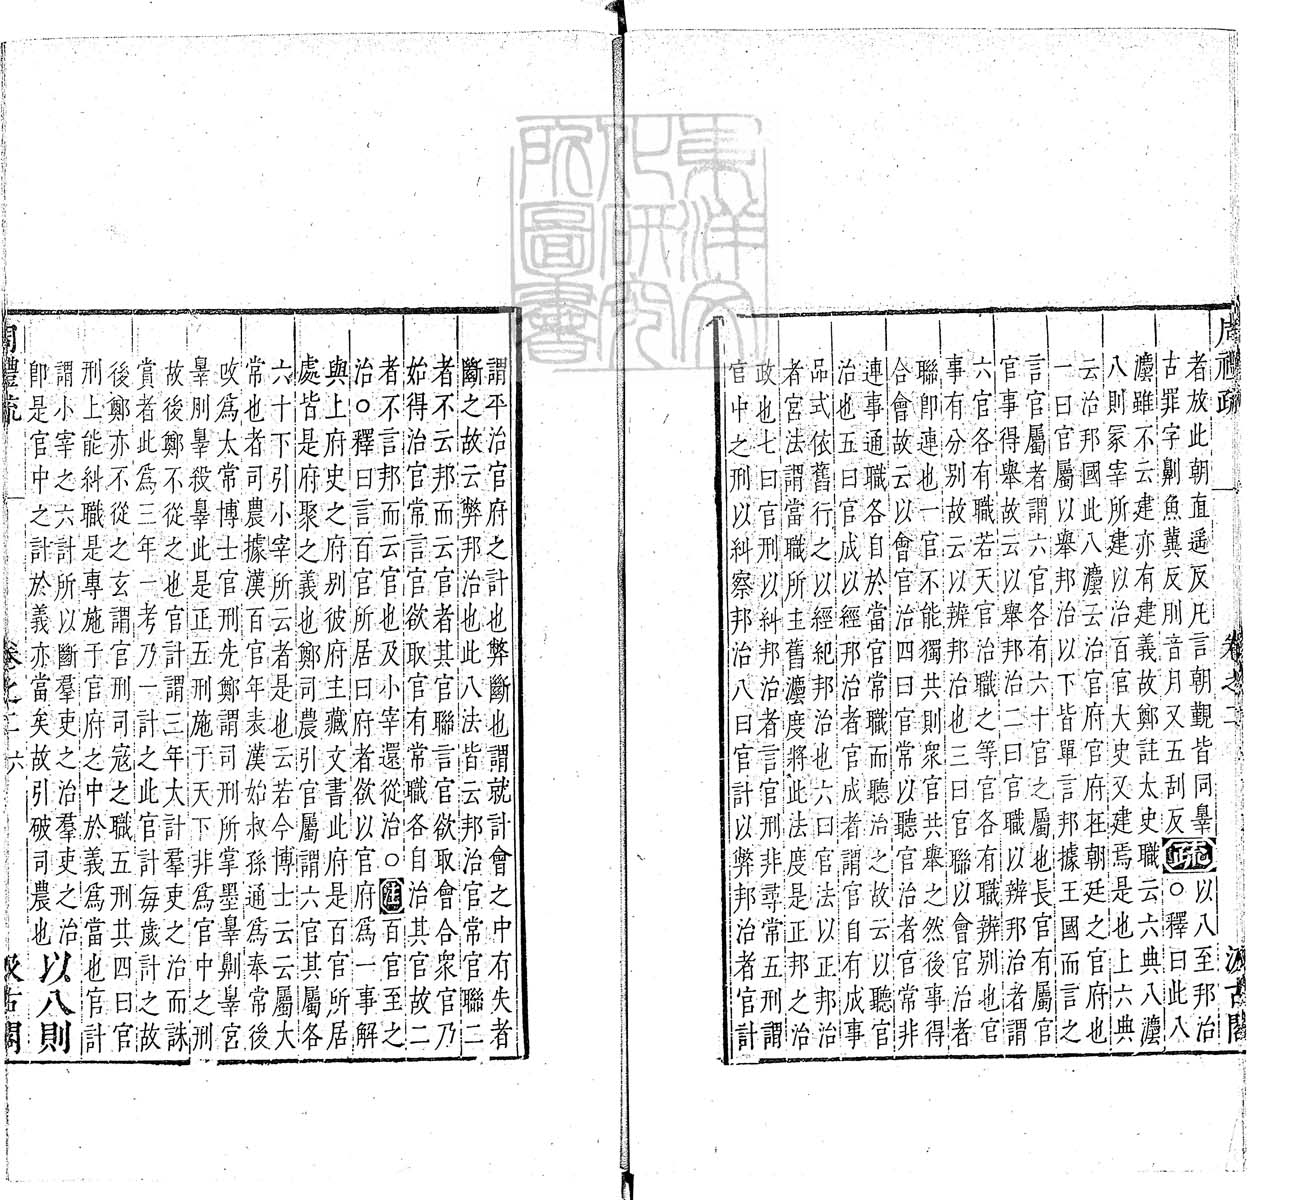 周禮疏 卷之二 汲古閣
者放此朝直遥反凡言朝覲皆同辠疏以八至邦治
古罪字劓魚冀反刖音月又五刮反○釋曰此八
灋雖不云建亦有建義故鄭註太史職云六典八灋
八則冢宰所建以治百官大史又建焉是也上六典
云治邦國此八灋云治官府官府在朝廷之官府也
一曰官屬以舉邦治以下皆單言邦據王國而言之
言官屬者謂六官各有六十官之屬也長官有屬
官事得舉故云以舉邦治二曰官職以辨邦治者謂
六官各有職若天官治職之等官各有職辨别也官
事有分别故云以辨邦治也三曰官聯以會官治者
聯卽連也一官不能獨共則衆官共舉之然後事得
合會故云以會官治四曰官常以聽官治者官常非
連事通職各自於當官常職而聽治之故云以聽官
治也五曰官成以經邦治者官成者謂官自有成事
品式依舊行之以經紀邦治也六曰官法以正邦治
者宮法謂當職所主舊灋度將此法度是正邦之治
政也七曰官刑以糾邦治者言官刑非尋常五刑謂
官中之刑以糾察邦治八曰官計以弊邦治者官計
謂平治官府之計也弊斷也謂就計會之中有失者
斷之故云弊邦治也此八法皆云邦治官常官聯二
者不云邦而云官者其官聯言官欲取會合衆官乃
始得治官常言官欲取官有常職各自治其官故二
者不言邦而云官也及小宰還從治○注百官至之
治○釋曰言百官所居曰府者欲以官府爲一事解
與上府史之府别彼府主藏文書此府是百官所居
處皆是府聚之義也鄭司農引官屬謂六官其屬各
六十下引小宰所云者是也云若今博士云云屬大
常也者司農據漢百官年表漢始叔孫通爲奉常後
攺爲太常博士官刑先鄭謂司刑所掌墨辠劓辠宮
辠刖辠殺辠此是正五刑施于天下非爲官中之刑
故後鄭不從之也官計謂三年大計羣吏之治而誅
賞者此爲三年一考乃一計之此官計每歲計之故
後鄭亦不從之玄謂官刑司寇之職五刑其四曰官
刑上能糾職是專施于官府之中於義爲當也官計
謂小宰之六計所以斷羣吏之治羣吏之治
卽是官中之計於義亦當矣故引破司農也 以八則
周禮疏 卷之二 六 汲古閣
東洋文化研究所圖書